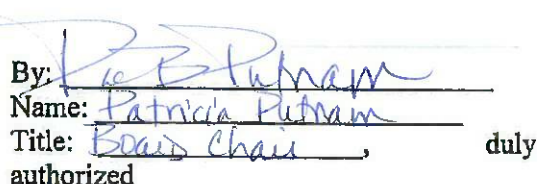 By: Pat B Putnam
Name: Patricia Putnam
Title: Board Chair, duly
authorized